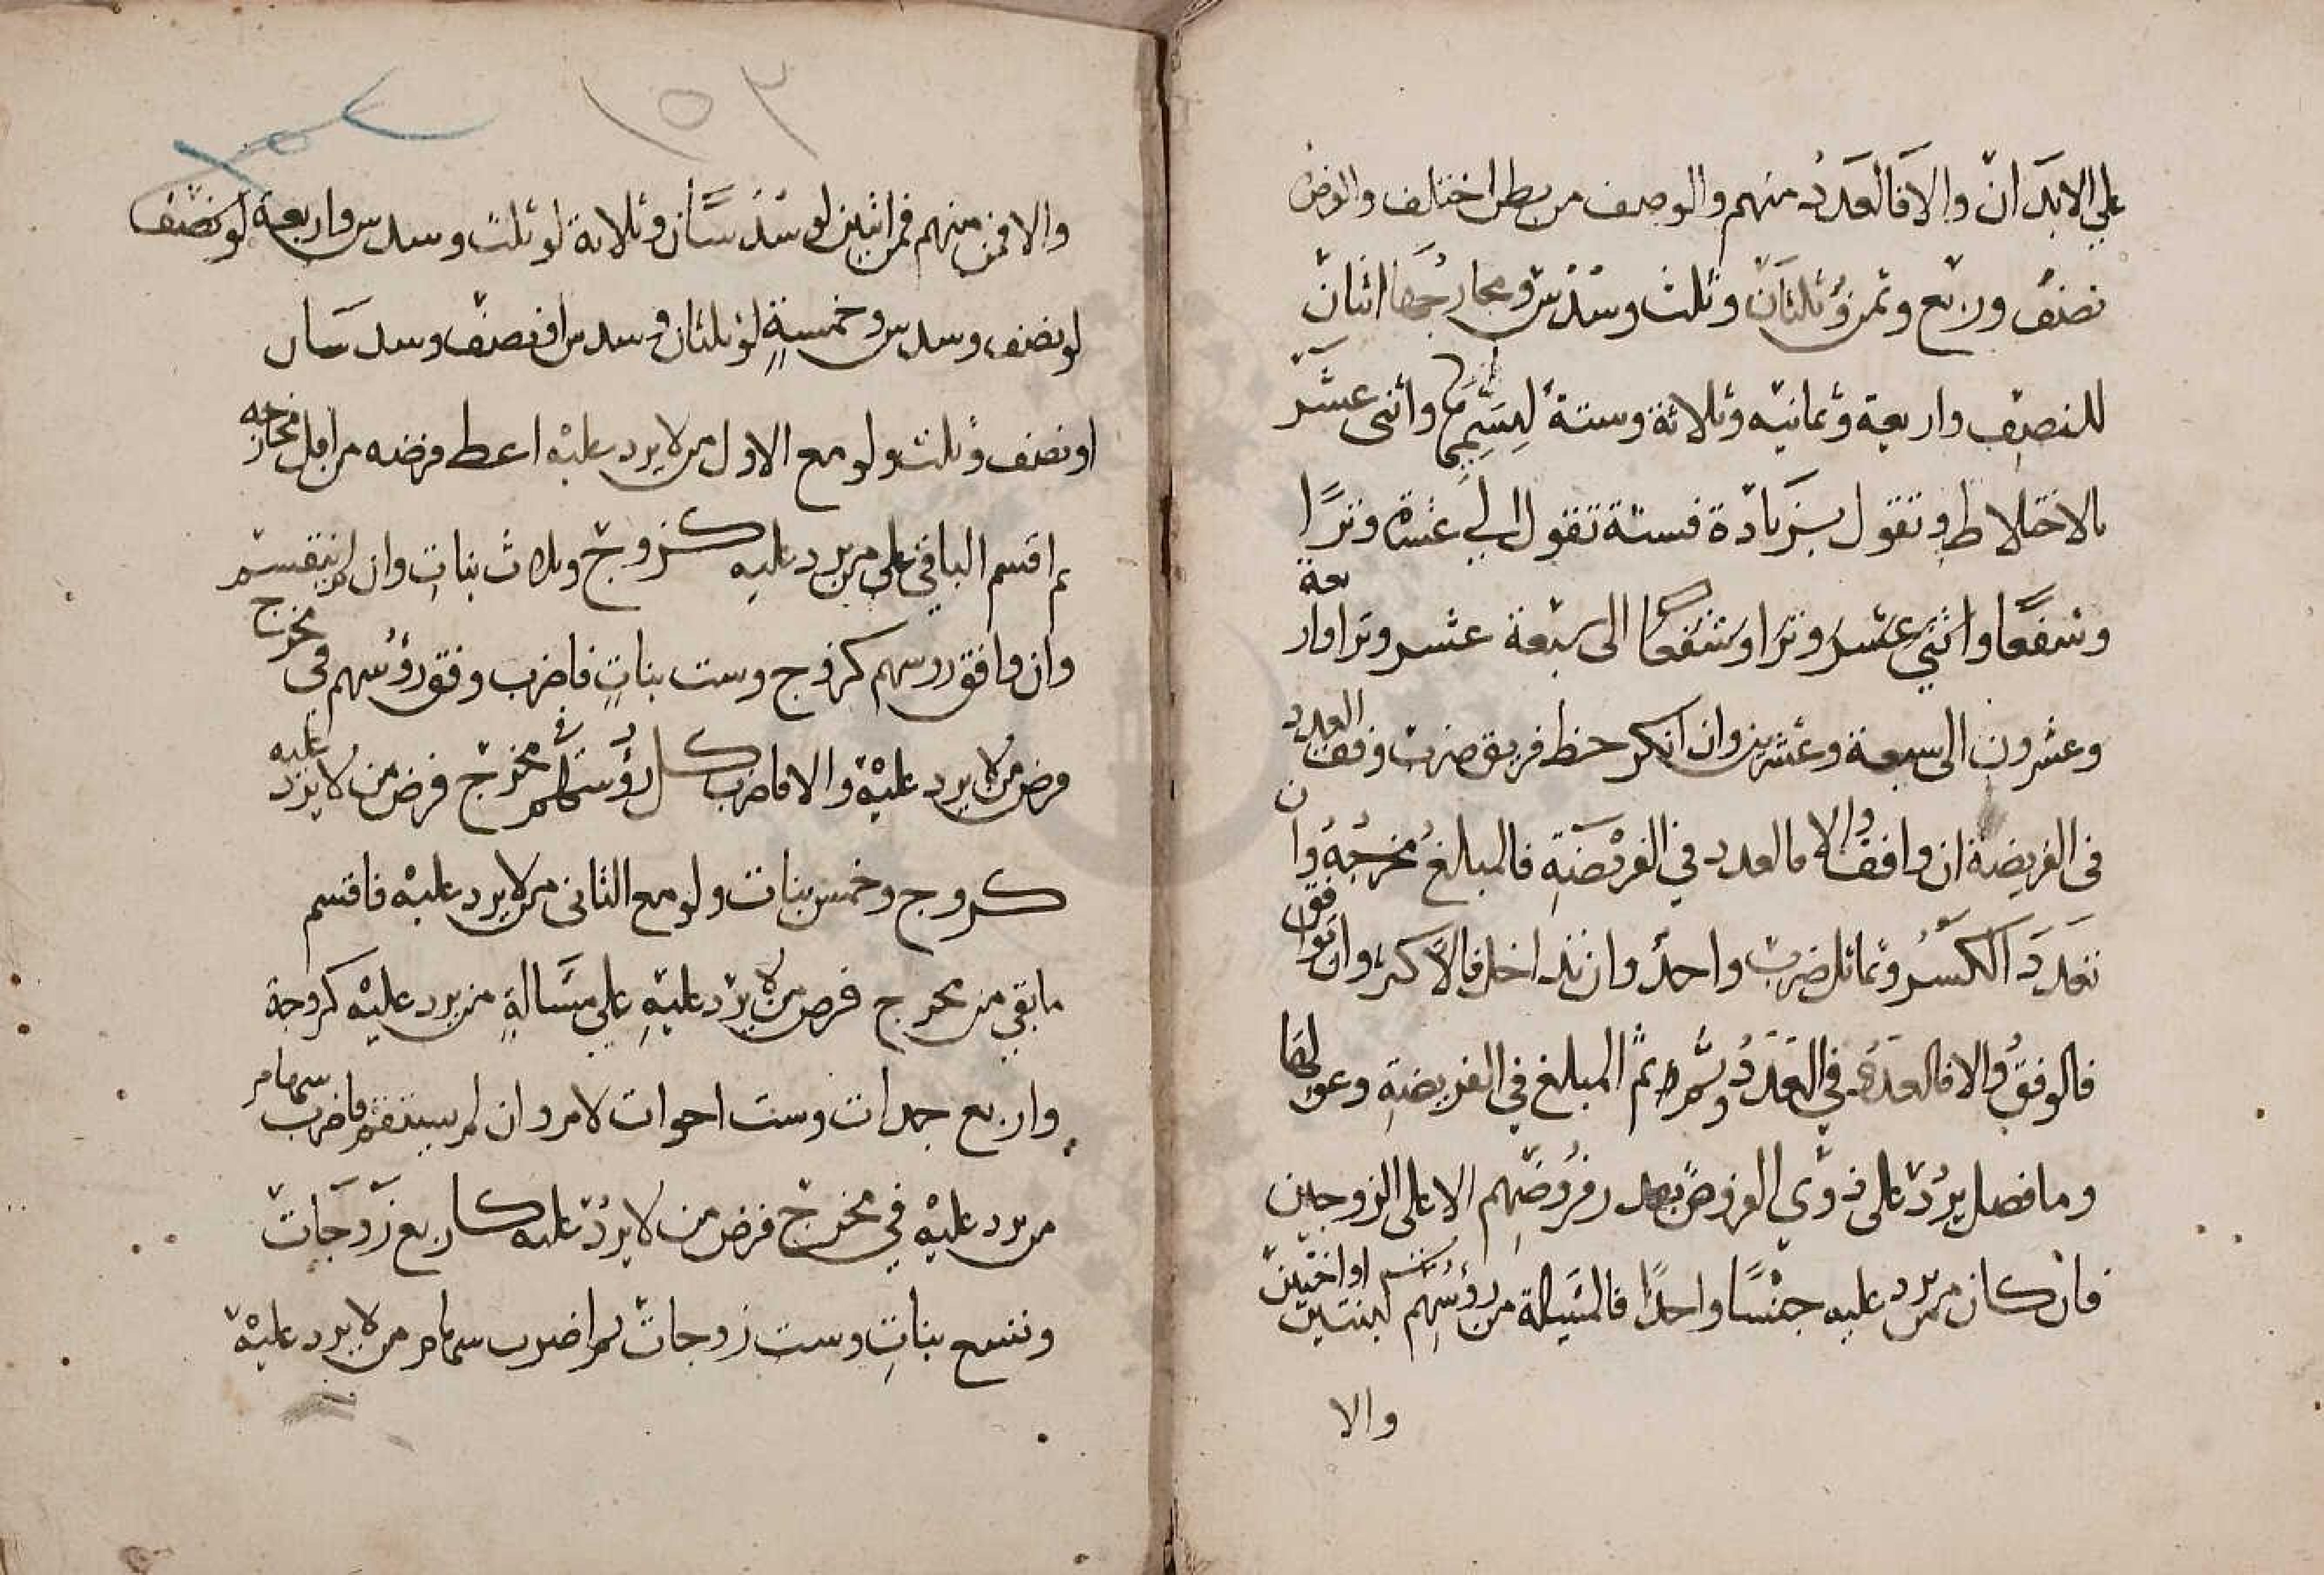 على الابدان والا فالعدد منهم والوصف من بطن اختلف والفروض
نصف وربع وثمن وثلثان وثلث وسدس ومخارجها اثنان
للنصف واربعة وثمانية وثلاثة وستة لسميها واثنى عشر
بالاختلاط وتعول بزيادة فستة تعول الى عشرة وترا
وشفعا واثنى عشر وترا وشفعا الى سبعة عشر وترا واربعة
وعشرون الى سبعة وعشرين وان انكسر حظ فريق ضرب وفق العدد
فى الفريضة ان وافق والا فالعدد في الفريضة فالمبلغ مخرجه وان
تعدد الكسر وتماثل ضرب واحد وان تداخل فالاكثر وان توافق
فالوفق والا فالعدد في العدد وثم وثم ثم المبلغ في الفريضة وعولها
وما فضل يرد على ذوي الفروض بعدد فروضهم الا على الزوجين
فان كان من يرد عليه جنسا واحدا فالمسئلة من رؤسهم كبنتين او اختين
والا
١٥٣
والا فمن سهامهم فمن اثنين لو سدسان وثلاثة لو ثلث وسدس واربعة لو نصف
لو نصف وسدس وخمسة لو ثلثان وسدس او نصف وسدسان
او نصف وثلث ولو مع الاول من لا يرد عليه اعط فرضه من اقل مخارجه
ثم اقسم الباقي على من يرد عليه كزوج وثلاث بنات وان لم ينقسم
وان وافق روسهم كزوج وست بنات فاضرب وفق رؤسهم في مخرج
فرض من لا يرد عليه والا فاضرب كل رؤسهم في مخرج فرض من لا يرد عليه
كزوج وخمس بنات ولو مع الثانى من لا يرد عليه فاقسم
ما بقي من مخرج فرض من لا يرد عليه على مسالة من يرد عليه كزوجة
واربع جدات وست اخوات لام وان لم يستقم فاضرب سهام
من يرد عليه في مخرج فرض من لا يرد عليه كاربع زوجات
وتسع بنات وست زوجات ثم اضرب سهام من لا يرد عليه